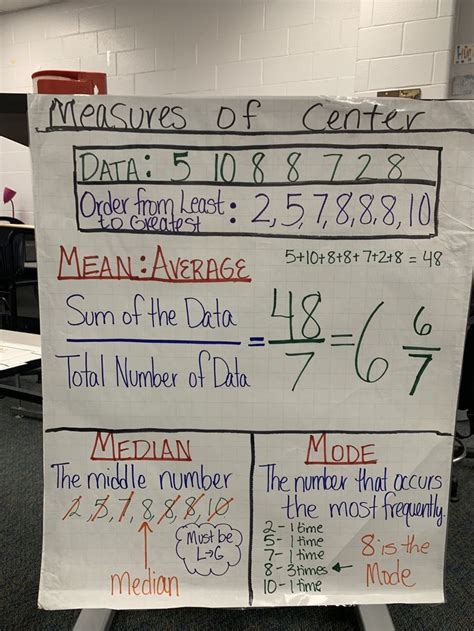 Measures of Center
DATA: 5 10 8 8 7 2 8
Order from Least to Greatest: 2,5,7,8,8,8,10
MEAN: AVERAGE
5+10+8+8+7+2+8 = 48
Sum of the Data
Total Number of Data
= 48/7 = 6 6/7
MEDIAN
The middle number
2,5,7,8,8,8,10
Must be
L→G
median
MODE
The number that occurs
the most frequently.
2 - 1 time
5 - 1 time
7 - 1 time
8 - 3 times ←
10 - 1 time
8 is the
Mode